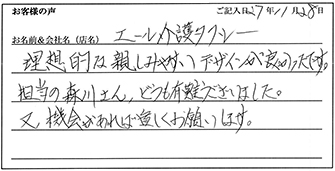 お客様の声 ご記入日27年11月28日
お名前&会社名(店名) エール介護タクシー
理想的な親しみやすいデザインが良かったです。
担当の森川さん、どうも有難うございました。
又、機会があれば宜しくお願いします。